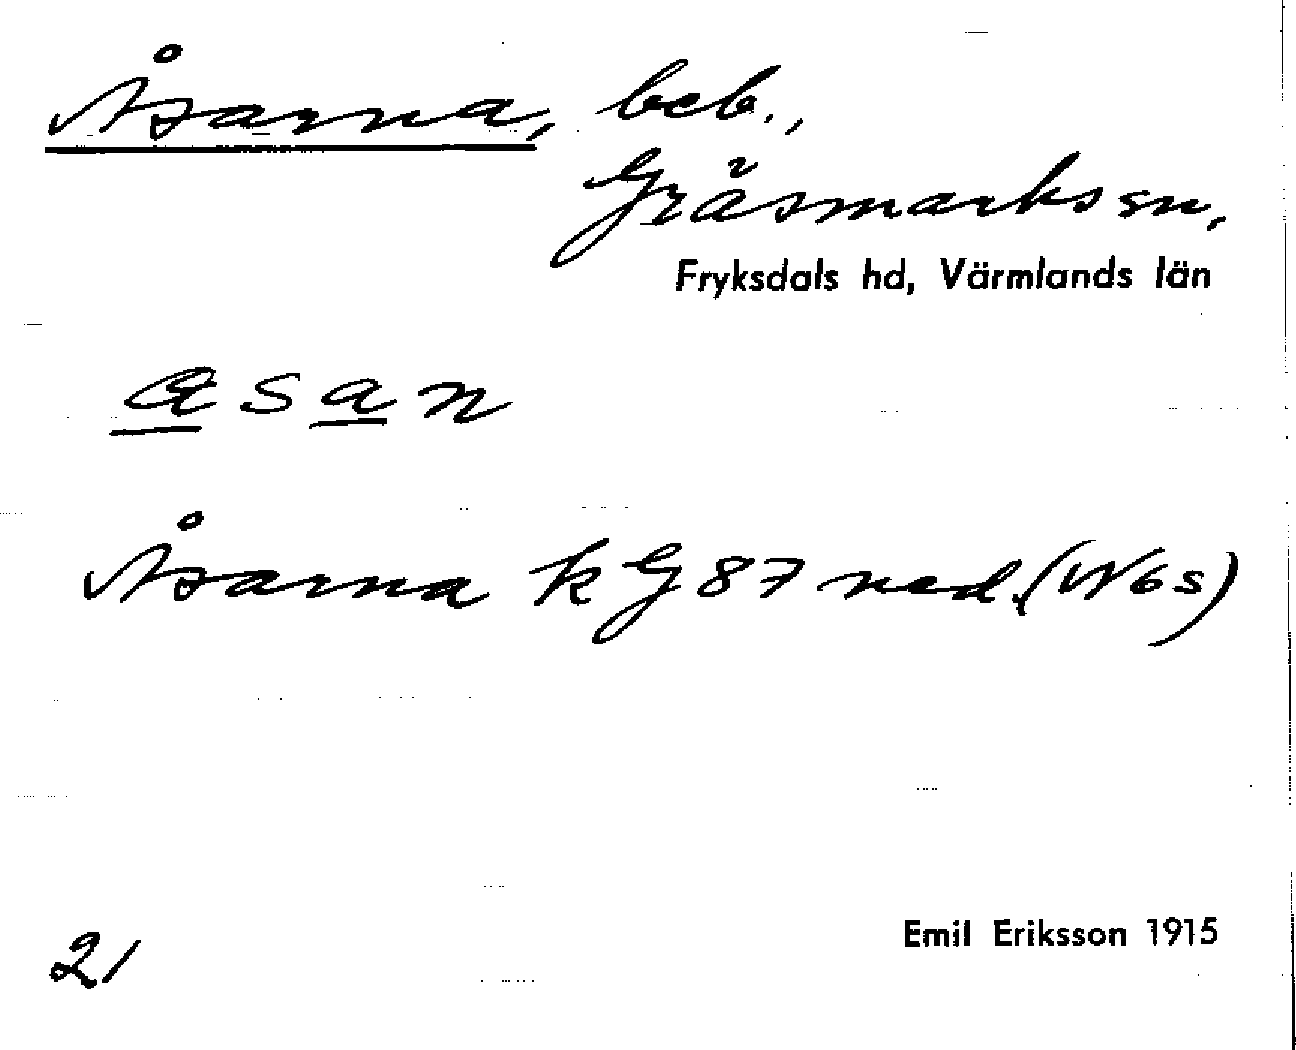 Åsarna, beb.,
Gräsmarks sn,
Fryksdals hd, Värmlands län
a s a n
Åsarna k G 87 ned. (W6s)
21
Emil Eriksson 1915